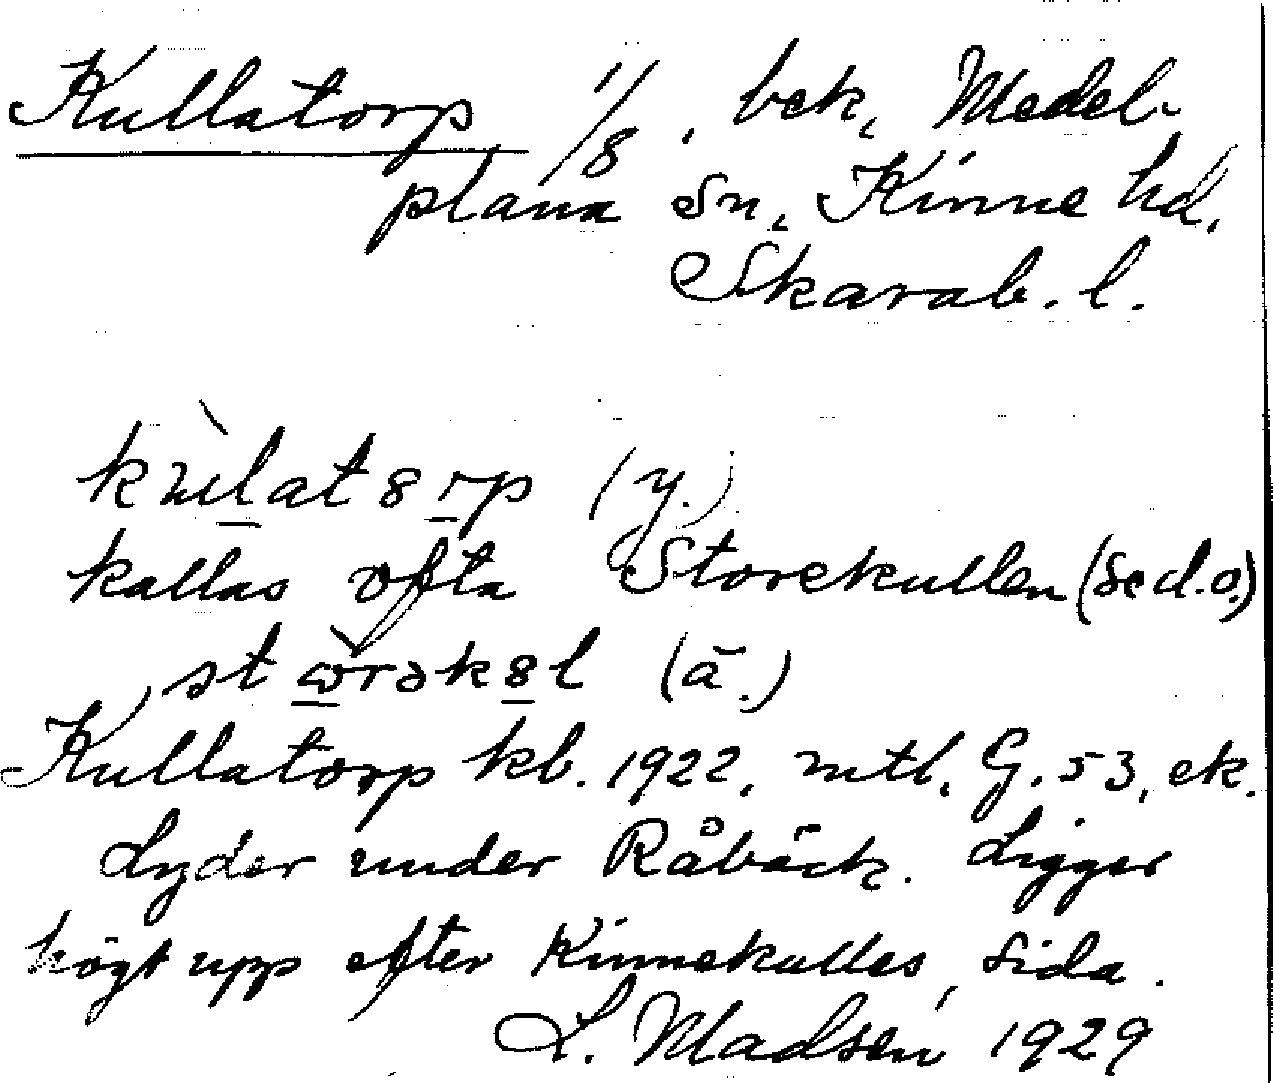 Kullatorp 1/8, bek, Medel-
plana Sn, Kinne hd.
Skarab. l.
kùlat8rp (y.)
kallas ofta Storekullen (se d.o.)
stὼrək8l (ä.)
Kullatorp kb. 1922, mtl. G. 53, ek.
Lyder under Råbäck. Ligger
högt upp efter Kinnekulles sida.
L. Madsen 1929